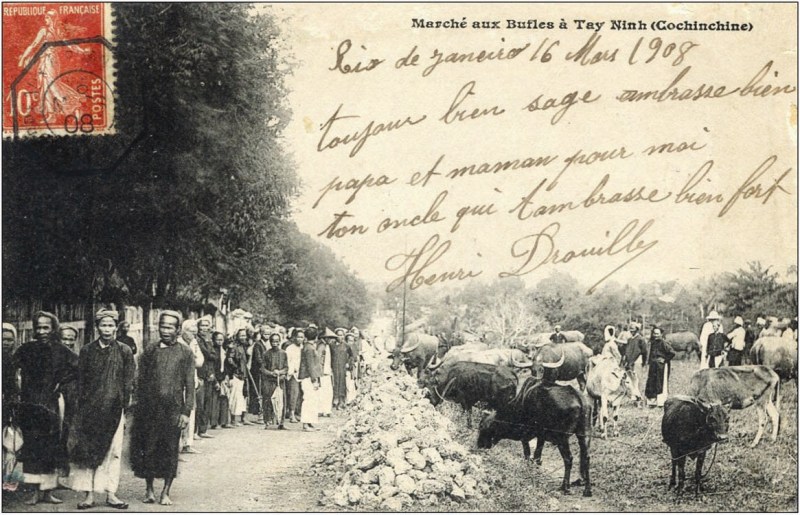 RÉPUBLIQUE FRANÇAISE
10c
POSTES
08
Marché aux Bufles à Tay Ninh (Cochinchine)
Rio de janeiro 16 Mars 1908
toujour bien sage ambrasse bien
papa et maman pour moi
ton oncle qui t'ambrasse bien fort
Henri Drouilly